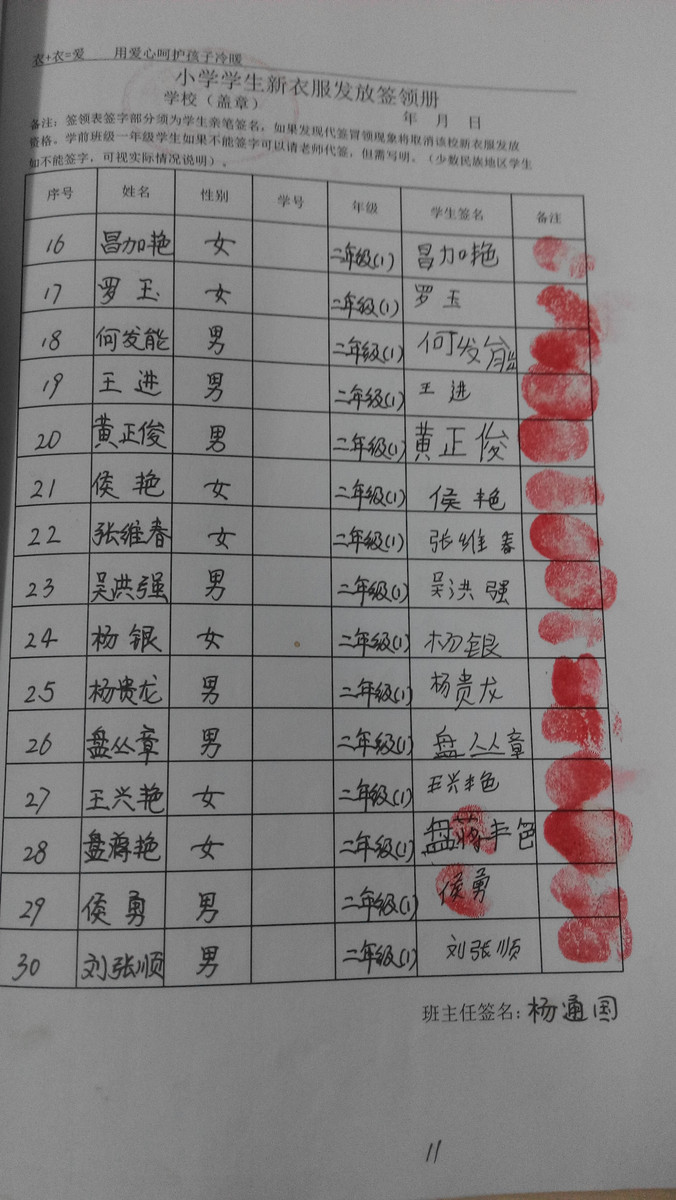 衣+衣=爱 用爱心呵护孩子冷暖
小学学生新衣服发放签领册
学校（盖章） 年 月 日
备注：签领表签字部分须为学生亲笔签名，如果发现代签冒领现象将取消该校新衣服发放
资格。学前班级一年级学生如果不能签字可以请老师代签，但需写明。（少数民族地区学生
如不能签字，可视实际情况说明）。
序号 姓名 性别 学号 年级 学生签名 备注
16 昌加艳 女 二年级(1) 昌加艳
17 罗玉 女 二年级(1) 罗玉
18 何发能 男 二年级(1) 何发能
19 王进 男 二年级(1) 王进
20 黄正俊 男 二年级(1) 黄正俊
21 侯艳 女 二年级(1) 侯艳
22 张维春 女 二年级(1) 张维春
23 吴洪强 男 二年级(1) 吴洪强
24 杨银 女 二年级(1) 杨银
25 杨贵龙 男 二年级(1) 杨贵龙
26 盘丛章 男 二年级(1) 盘丛章
27 王兴艳 女 二年级(1) 王兴艳
28 盘蒋艳 女 二年级(1) 盘蒋艳
29 侯勇 男 二年级(1) 侯勇
30 刘张顺 男 二年级(1) 刘张顺
班主任签名：杨通国
11